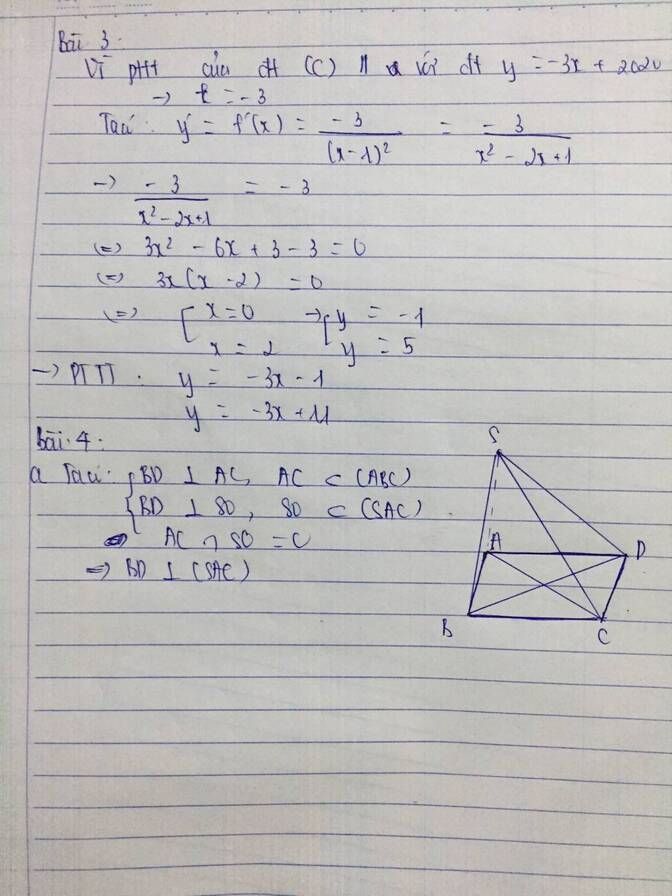 Bài 3.
Vì ptt của đt (C) // với đt y = -3x + 2020
→ k = -3
Ta có: y' = f'(x) = \frac{-3}{(x-1)^2} = \frac{-3}{x^2 - 2x + 1}
→ \frac{-3}{x^2 - 2x + 1} = -3
(=) 3x^2 - 6x + 3 - 3 = 0
(=) 3x(x - 2) = 0
(=) [ x = 0 → [ y = -1
x = 2 y = 5
→ PTTT. y = -3x - 1
y = -3x + 11
Bài 4.
a Ta có: { BD ⊥ AC, AC ⊂ (ABC)
BD ⊥ SO, SO ⊂ (SAC).
AC ∩ SO = O
=> BD ⊥ (SAC)
S
A
D
B
C